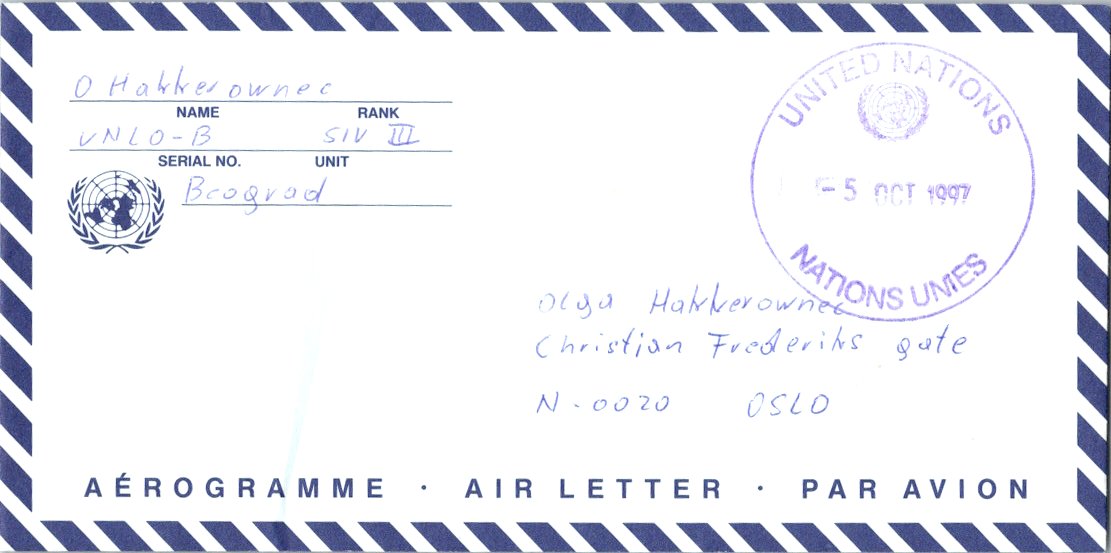 O Hakkerownec
NAME RANK
UNLO-B SIV III
SERIAL NO. UNIT
Beograd
UNITED NATIONS
-5 OCT 1997
NATIONS UNIES
Olga Hakkerownec
Christian Frederiks gate
N-0020 OSLO
AÉROGRAMME · AIR LETTER · PAR AVION